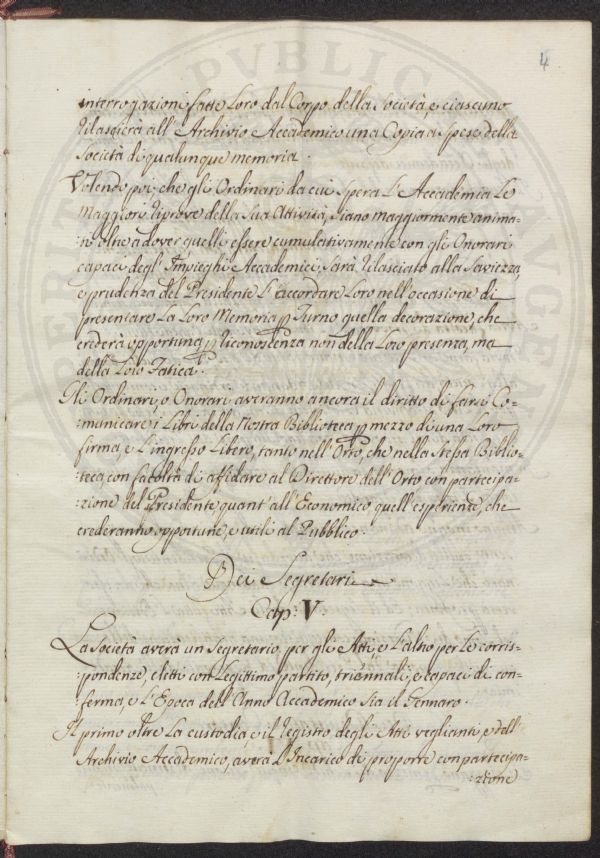 4
interrogazioni fatte Loro dal Corpo della Società, e ciascuno
rilascierà all'Archivio Accademico una Copia a Spese della
Società di qualunque memoria.
Volendo poi, che gli Ordinari da cui Spera L'Accademia Le
Maggiori riprove della Sua Attività, Siano maggiormente anima-
ti oltre a dover quelli essere cumulativamente con gli Onorari
capaci degl'Impieghi Accademici, Sarà rilasciato alla Saviezza,
e prudenza del Presidente L'accordare Loro nell'occasione di
presentare La Loro Memoria p Turno quella decorazione, che
crederà opportuna p riconoscenza non della Loro presenza, ma
della Loro Fatica.
Gli Ordinari, o Onorari averanno ancora il diritto di farsi Co=
=municare i Libri della Nostra Biblioteca p mezzo di una Loro
firma, e L'ingresso Libero, tanto nell'Orto, che nella Stessa Biblio=
=teca, con facoltà di affidare al Direttore dell'Orto con partecipa=
=zione del Presidente quant'all'Economico quell'esperienze, che
crederanno opportune, e utili al Pubblico.
Dei Segretari
Cap: V.
La Società averà un Segretario per gli Atti, e L'altro per Le corris=
=pondenze, eletti con Legittimo partito, triennali, e capaci di con=
=ferma, e L'Epoca dell'Anno Accademico Sia il Gennaro.
Il primo oltre La custodia, e il registro degli Atti veglianti, e dell'
Archivio Accademico, averà L'Incarico di proporre con partecipa=
=zione
PVBLIC